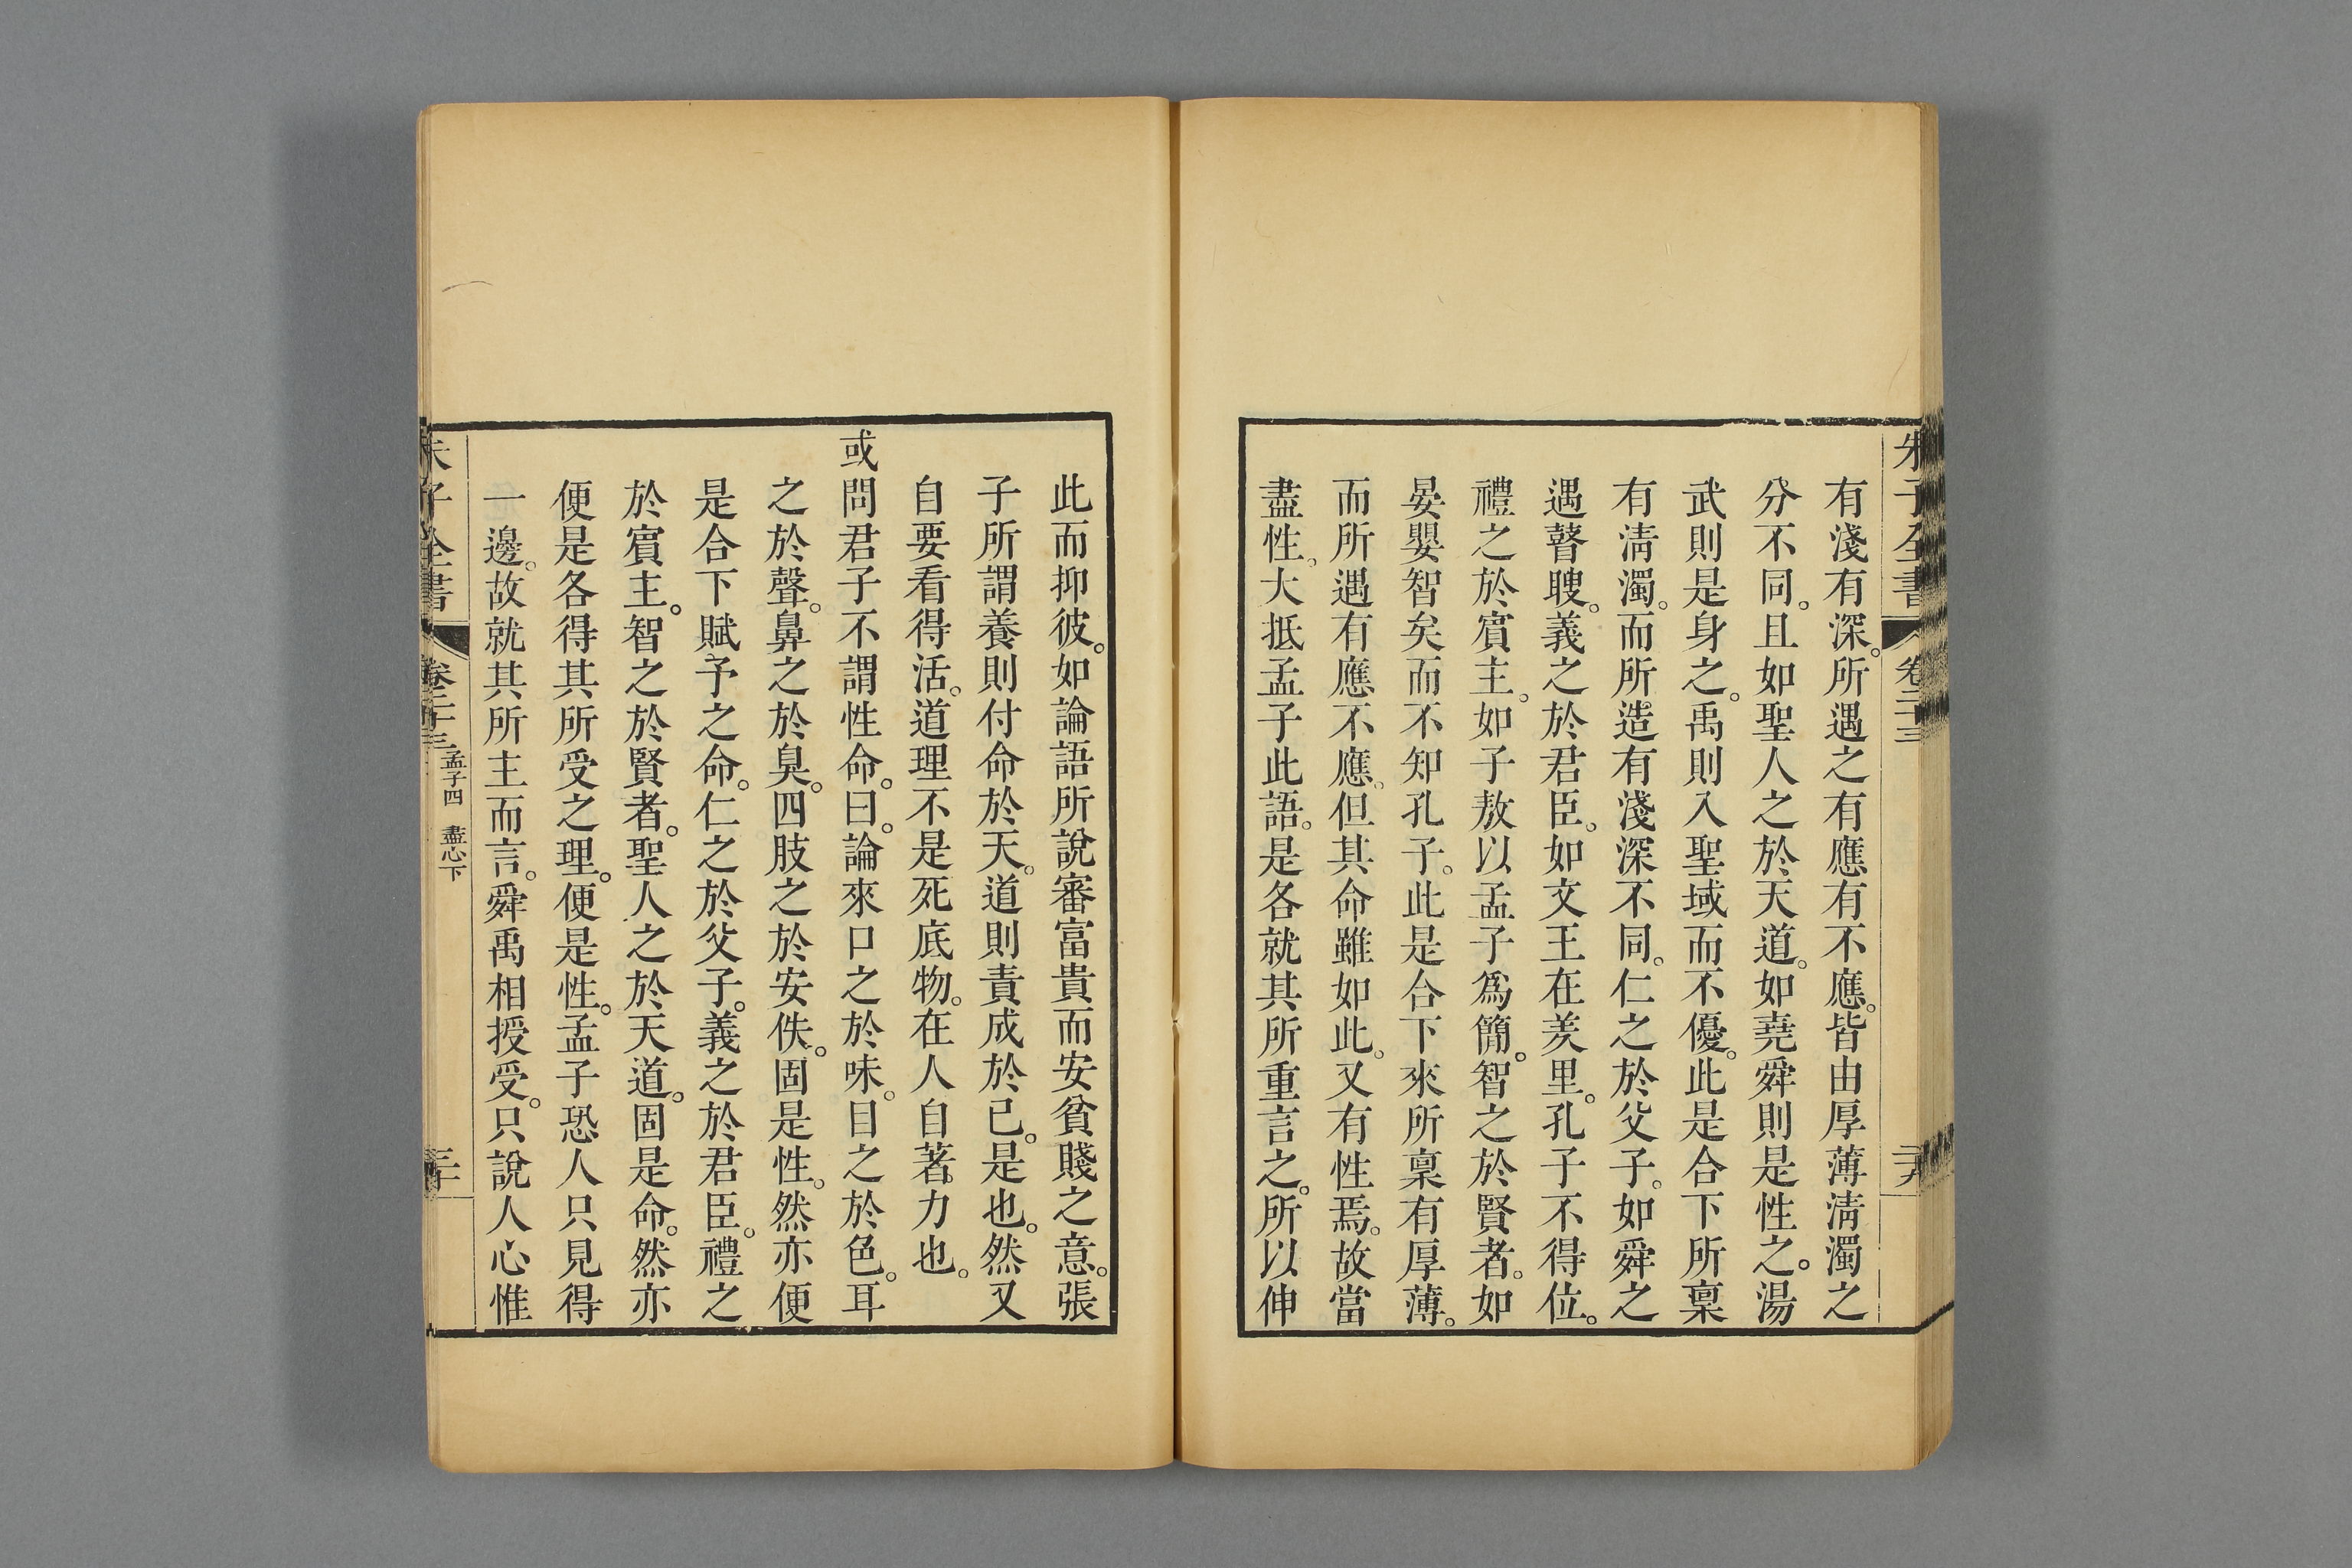 朱子全書 卷二十三
有淺有深。所遇之有應有不應。皆由厚薄淸濁之
分不同。且如聖人之於天道。如堯舜則是性之。湯
武則是身之。禹則入聖域而不優。此是合下所稟
有淸濁。而所造有淺深不同。仁之於父子。如舜之
遇瞽瞍。義之於君臣。如文王在羑里。孔子不得位。
禮之於賓主。如子敖以孟子爲簡。智之於賢者。如
晏嬰智矣而不知孔子。此是合下來所稟有厚薄。
而所遇有應不應。但其命雖如此。又有性焉。故當
盡性。大抵孟子此語。是各就其所重言之。所以伸
此而抑彼。如論語所說審富貴而安貧賤之意。張
子所謂養則付命於天。道則責成於己。是也。然又
自要看得活。道理不是死底物。在人自著力也。
或問君子不謂性命。曰。論來口之於味。目之於色。耳
之於聲。鼻之於臭。四肢之於安佚。固是性。然亦便
是合下賦予之命。仁之於父子。義之於君臣。禮之
於賓主。智之於賢者。聖人之於天道。固是命。然亦
便是各得其所受之理。便是性。孟子恐人只見得
一邊。故就其所主而言。舜禹相授受。只說人心惟
朱子全書 卷二十三 孟子四 盡心下 三十